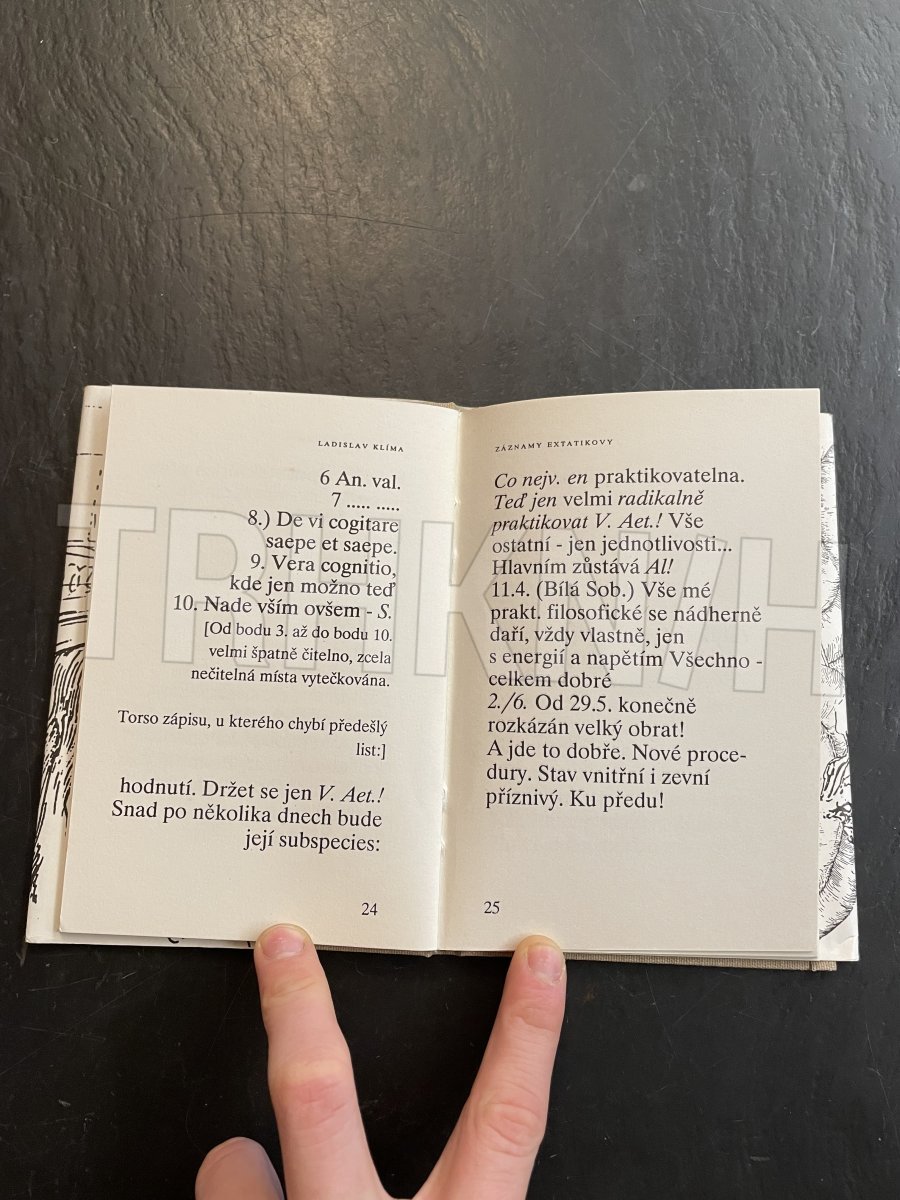 LADISLAV KLÍMA
6 An. val.
7 ..... .....
8.) De vi cogitare
saepe et saepe.
9. Vera cognitio,
kde jen možno teď
10. Nade vším ovšem - S.
[Od bodu 3. až do bodu 10.
velmi špatně čitelno, zcela
nečitelná místa vytečkována.
Torso zápisu, u kterého chybí předešlý
list:]
hodnutí. Držet se jen V. Aet.!
Snad po několika dnech bude
její subspecies:
24
ZÁZNAMY EXTATIKOVY
Co nejv. en praktikovatelna.
Teď jen velmi radikalně
praktikovat V. Aet.! Vše
ostatní - jen jednotlivosti...
Hlavním zůstává Al!
11.4. (Bílá Sob.) Vše mé
prakt. filosofické se nádherně
daří, vždy vlastně, jen
s energií a napětím Všechno -
celkem dobré
2./6. Od 29.5. konečně
rozkázán velký obrat!
A jde to dobře. Nové proce-
dury. Stav vnitřní i zevní
příznivý. Ku předu!
25